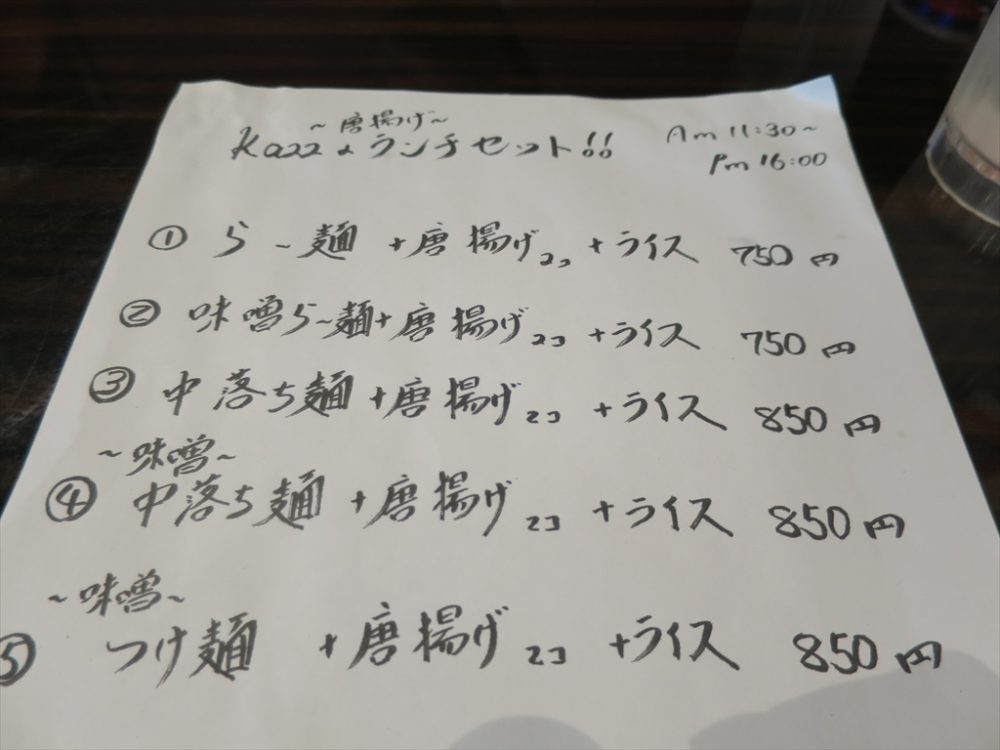 ～唐揚げ～
Kazzよランチセット!!
Am 11:30～
Pm 16:00
① らー麺 +唐揚げ2コ +ライス 750円
② 味噌らー麺+唐揚げ2コ +ライス 750円
③ 中落ち麺+唐揚げ2コ +ライス 850円
～味噌～
④ 中落ち麺 +唐揚げ2コ +ライス 850円
～味噌～
⑤ つけ麺 +唐揚げ2コ +ライス 850円